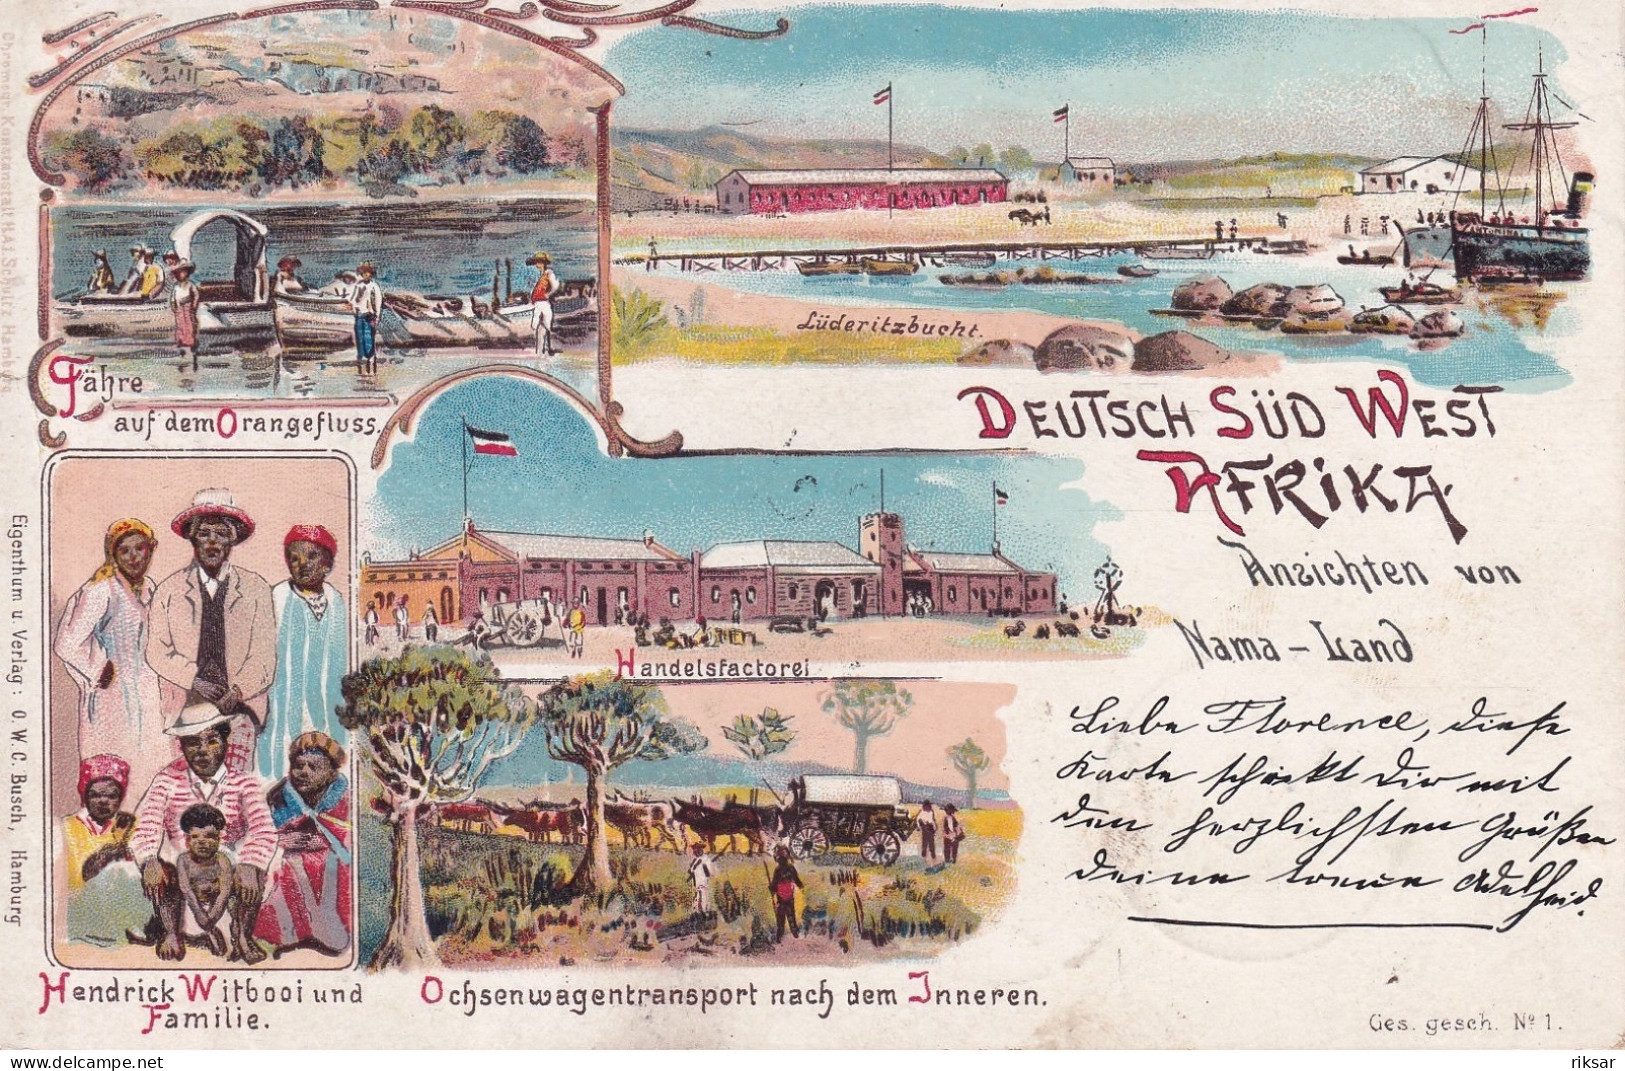 Lüderitzbucht.
Fähre
auf dem Orangefluss.
DEUTSCH SÜD WEST
AFRIKA.
Ansichten von
Nama-Land
Handelsfactorei
Liebe Florence, diese
Karte schickt dir mit
den herzlichsten Grüßen
deine treue Adelheid.
Hendrick Witbooi und
Familie.
Ochsenwagentransport nach dem Inneren.
Ges. gesch. No 1.
Eigenthum u Verlag: O. W. C. Busch, Hamburg
Kunstanstalt H.A.J. Schultz Hamburg
riksar